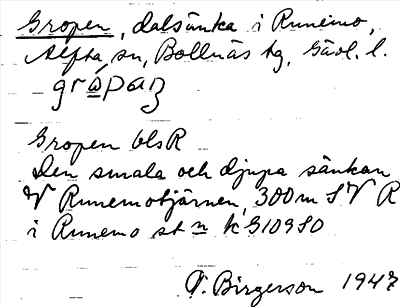 Gropen, dalsänka i Runemo,
Alfta sn, Bollnäs tg, Gävl. l.
grópaɳ
Gropen bls R
Den smala och djupa sänkan
V Runemotjärnen, 300 m SV R
i Runemo st n k G109 SO
Birgerson 1947